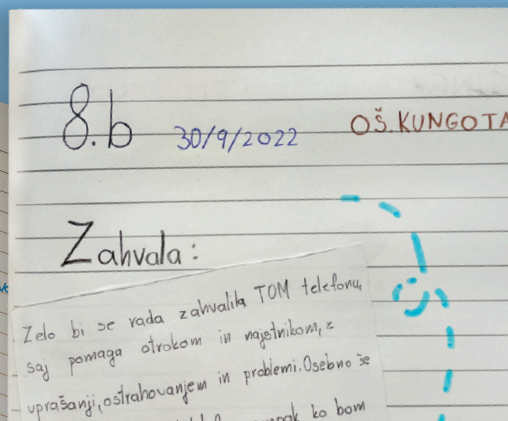 8.b
30/9/2022
OŠ.KUNGOTA
Zahvala:
Zelo bi se rada zahvalila TOM telefonu,
saj pomaga otrokom in najstnikom, z
uprašanji, ostrahovanjem in problemi. Osebno še
ko bom